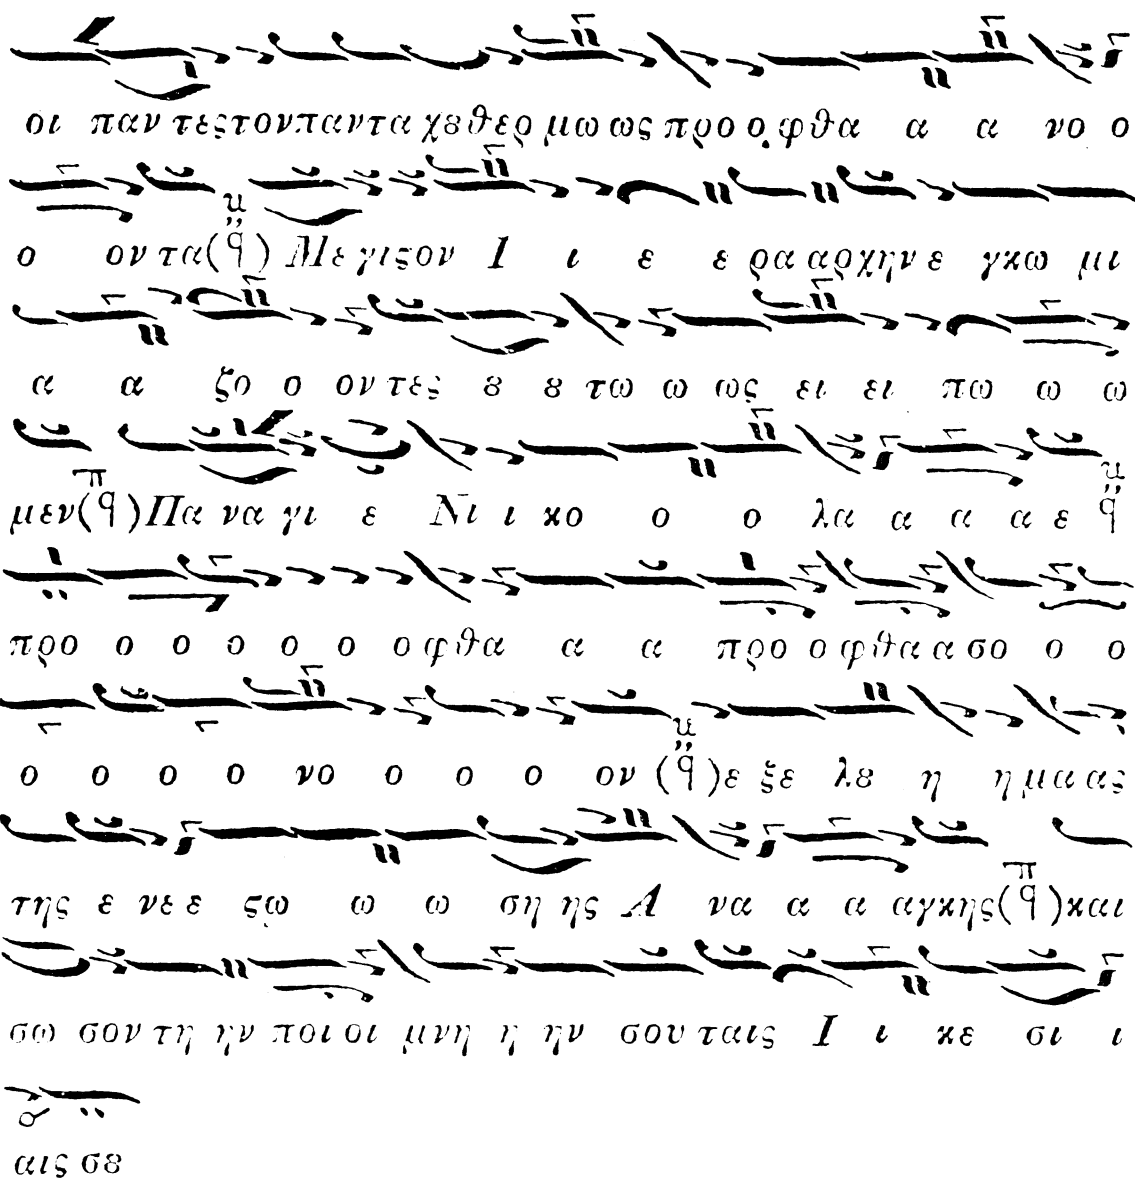 οι παν τεςτονπαντα χȣθερ μω ως προ ο φθα α α νο ο
ο ον τα(ϥ) Μεγιϛον Ι ι ε ε ρα αρχην ε γκω μι
α α ζο ο οντες ȣ ȣ τω ω ως ει ει πω ω ω
μεν(ϥ)Πα να γι ε Νι ι κο ο ο λα α α α ε ϥ
προ ο ο ο ο ο ο φθα α α προ ο φθα α σο ο ο
ο ο ο ο νο ο ο ο ον (ϥ)ε ξε λȣ η η μα ας
της ε νε ε ϛω ω ω ση ης Α να α α αγκης(ϥ)και
σω σον τη ην ποι οι μνη η ην σου ταις Ι ι κε σι ι
αις σȣ